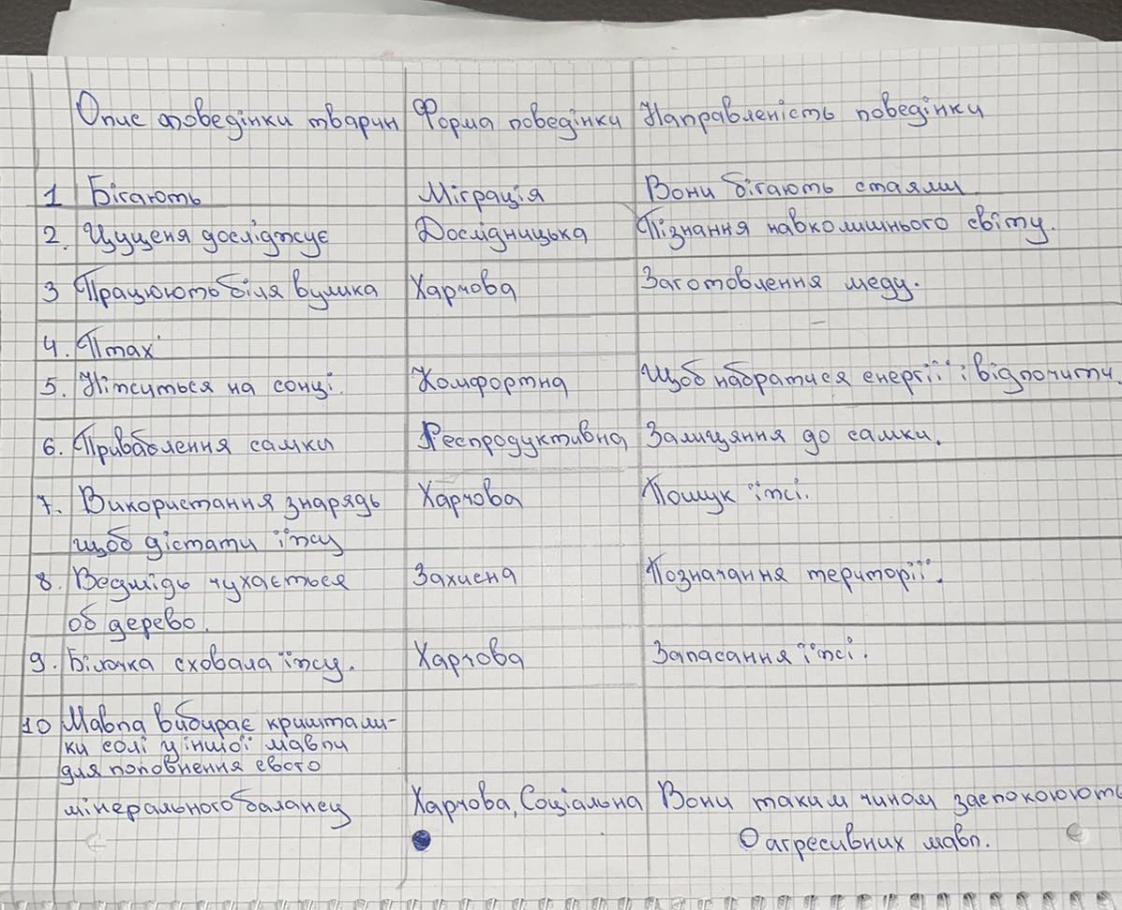 Опис поведінки тварин Форма поведінки Направленість поведінки
1 Бігають Міграція Вони бігають стаями
2. Цуценя досліджує Дослідницька Пізнання навколишнього світу.
3 Працюють біля вулика Харчова Заготовлення меду.
4. Птах
5. Ніжиться на сонці. Комфортна Щоб набратися енергії і відпочити.
6. Приваблення самки Респродуктивна Залицяння до самки.
7. Використання знарядь Харчова Пошук їжі.
щоб дістати їжу
8. Ведмідь чухається Захисна Позначання території.
об дерево.
9. Білочка сховала їжу. Харчова Запасання їжі.
10 Мавпа вибирає криштали-
ки солі у іншої мавпи
для поповнення свого
мінерального балансу Харчова, Соціальна Вони таким чином заспокоюють
агресивних мавп.